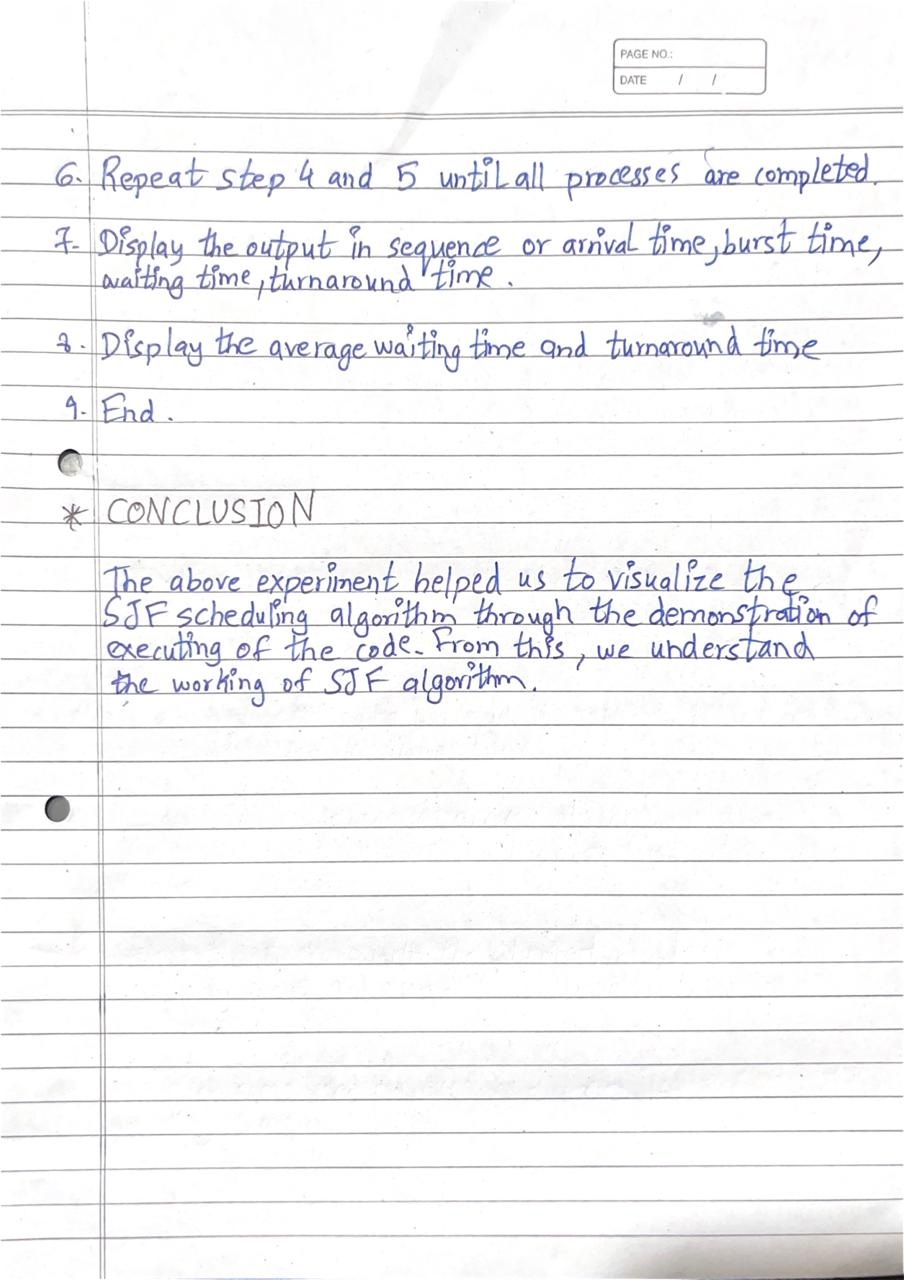 PAGE NO.:
DATE / /
6. Repeat step 4 and 5 until all processes are completed.
7. Display the output in sequence or arrival time, burst time,
waiting time, turnaround time.
8. Display the average waiting time and turnaround time
9. End.
* CONCLUSION
The above experiment helped us to visualize the
SJF scheduling algorithm through the demonstration of
executing of the code. From this, we understand
the working of SJF algorithm.